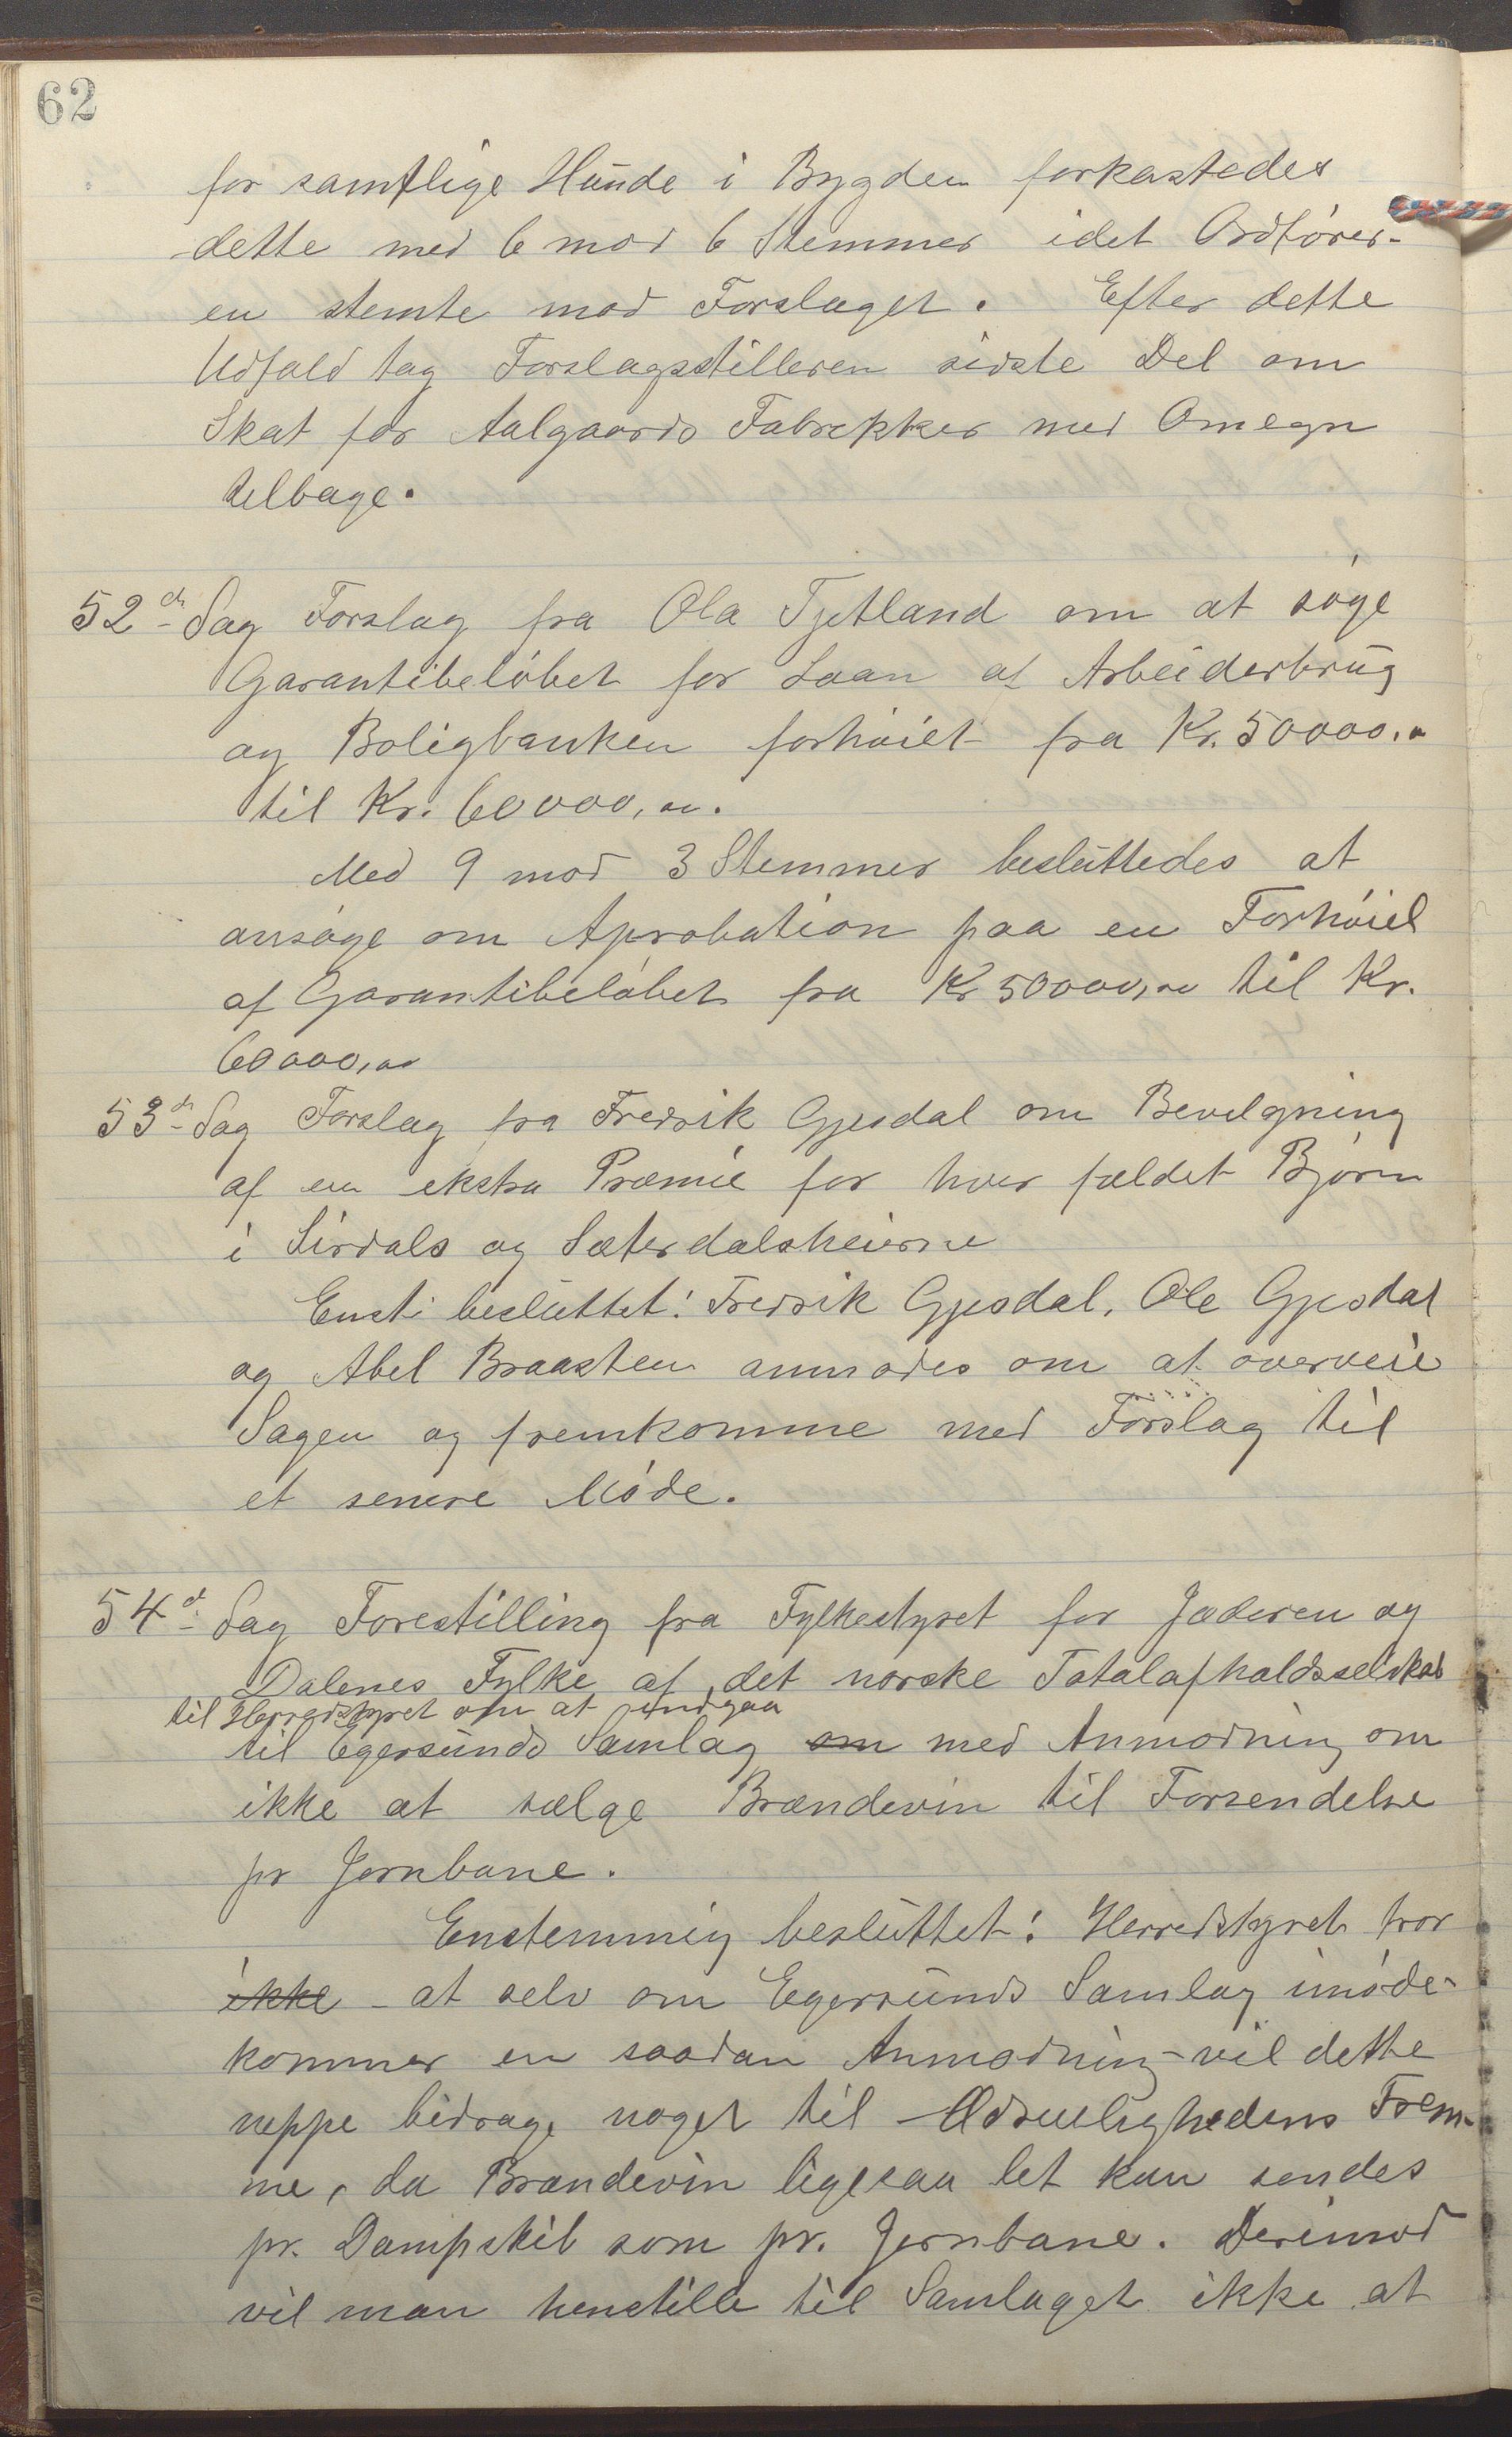 62
for samtlige Hunde i Bygden forkastedes
dette med 6 mod 6 Stemmer idet Ordfører-
en stemte mod Forslaget. Efter dette
Udfald tog Forslagsstilleren sidste Del om
Skat for Aalgaards Fabrikker med Omegn
tilbage.
52de Sag Forslag fra Ola Tjetland om at søge
Garantibeløbet for Laan af Arbeiderbrug
og Boligbanken forhøiet fra Kr. 50000,00
til Kr. 60000,00.
Med 9 mod 3 Stemmer besluttedes at
ansøge om Aprobation paa en Forhøiel
af Garantibeløbet fra Kr 50000,00 til Kr.
60000,00
53de Sag Forslag fra Fredrik Gjesdal om Bevilgning
af en ekstra Præmie for hver fældet Bjørn
i Sirdals og Sæterdalsheierne
Enst: besluttet: Fredrik Gjesdal, Ole Gjesdal
og Abel Braasten anmodes om at overveie
Sagen og fremkomme med Forslag til
et senere Møde.
54de Sag Forestilling fra Fylkestyret for Jæderen og
Dalenes Fylke af det norske Totalafholdsselskab
til Herredstyret om at indgaa
til Egersunds Samlag om med Anmodning om
ikke at sælge Brændevin til Forsendelse
pr Jernbane.
Enstemmig besluttet: Herredstyret tror
ikke - at selv om Egersunds Samlag imøde-
kommer en saadan Anmodning - vil dette
neppe bidrage noget til Ædruelighedens Frem-
me, da Brændevin ligesaa let kan sendes
pr. Dampskib som pr. Jernbane. Derimod
vil man henstille til Samlaget ikke at